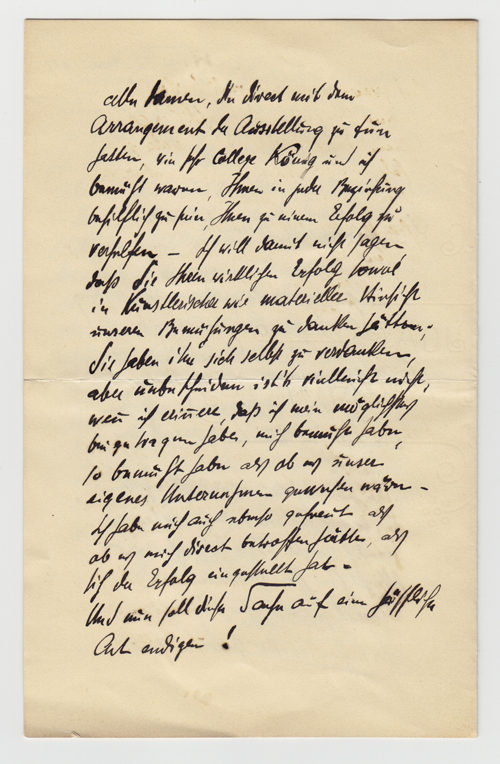 alle kamen, die direct mit dem
Arrangement der Ausstellung zu tun
hatten, wie sehr College König und ich
bemüht waren, Ihnen in jeder Beziehung
behilflich zu sein, Ihnen zu einem Erfolg zu
verhelfen. – Ich will damit nicht sagen,
daß Sie Ihren wirklichen Erfolg sowol
in künstlerischer wie materieller Hinsicht
unseren Bemühungen zu danken hätten;
Sie haben ihn sich selbst zu verdanken,
aber unbescheiden ist's vielleicht nicht,
wenn ich erinnere, daß ich mein möglichstes
beigetragen habe, mich bemüht habe,
so bemüht habe als ob es unser
eigenes Unternehmen gewesen wäre –
Ich habe mich auch ebenso gefreut als
ob es mich direct betroffen hätte, als
sich der Erfolg eingestellt hat –
Und nun soll diese Sache auf eine häßliche
Art endigen!